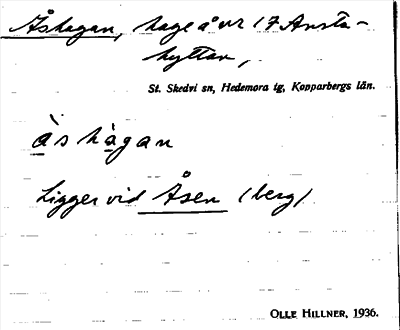 Åshagan, hage å nr 17 Ansta-
hyttan,
St. Skedvi sn, Hedemora tg, Kopparbergs län.
ås hagan
Ligger vid Åsen (berg)
OLLE HILLNER, 1936.